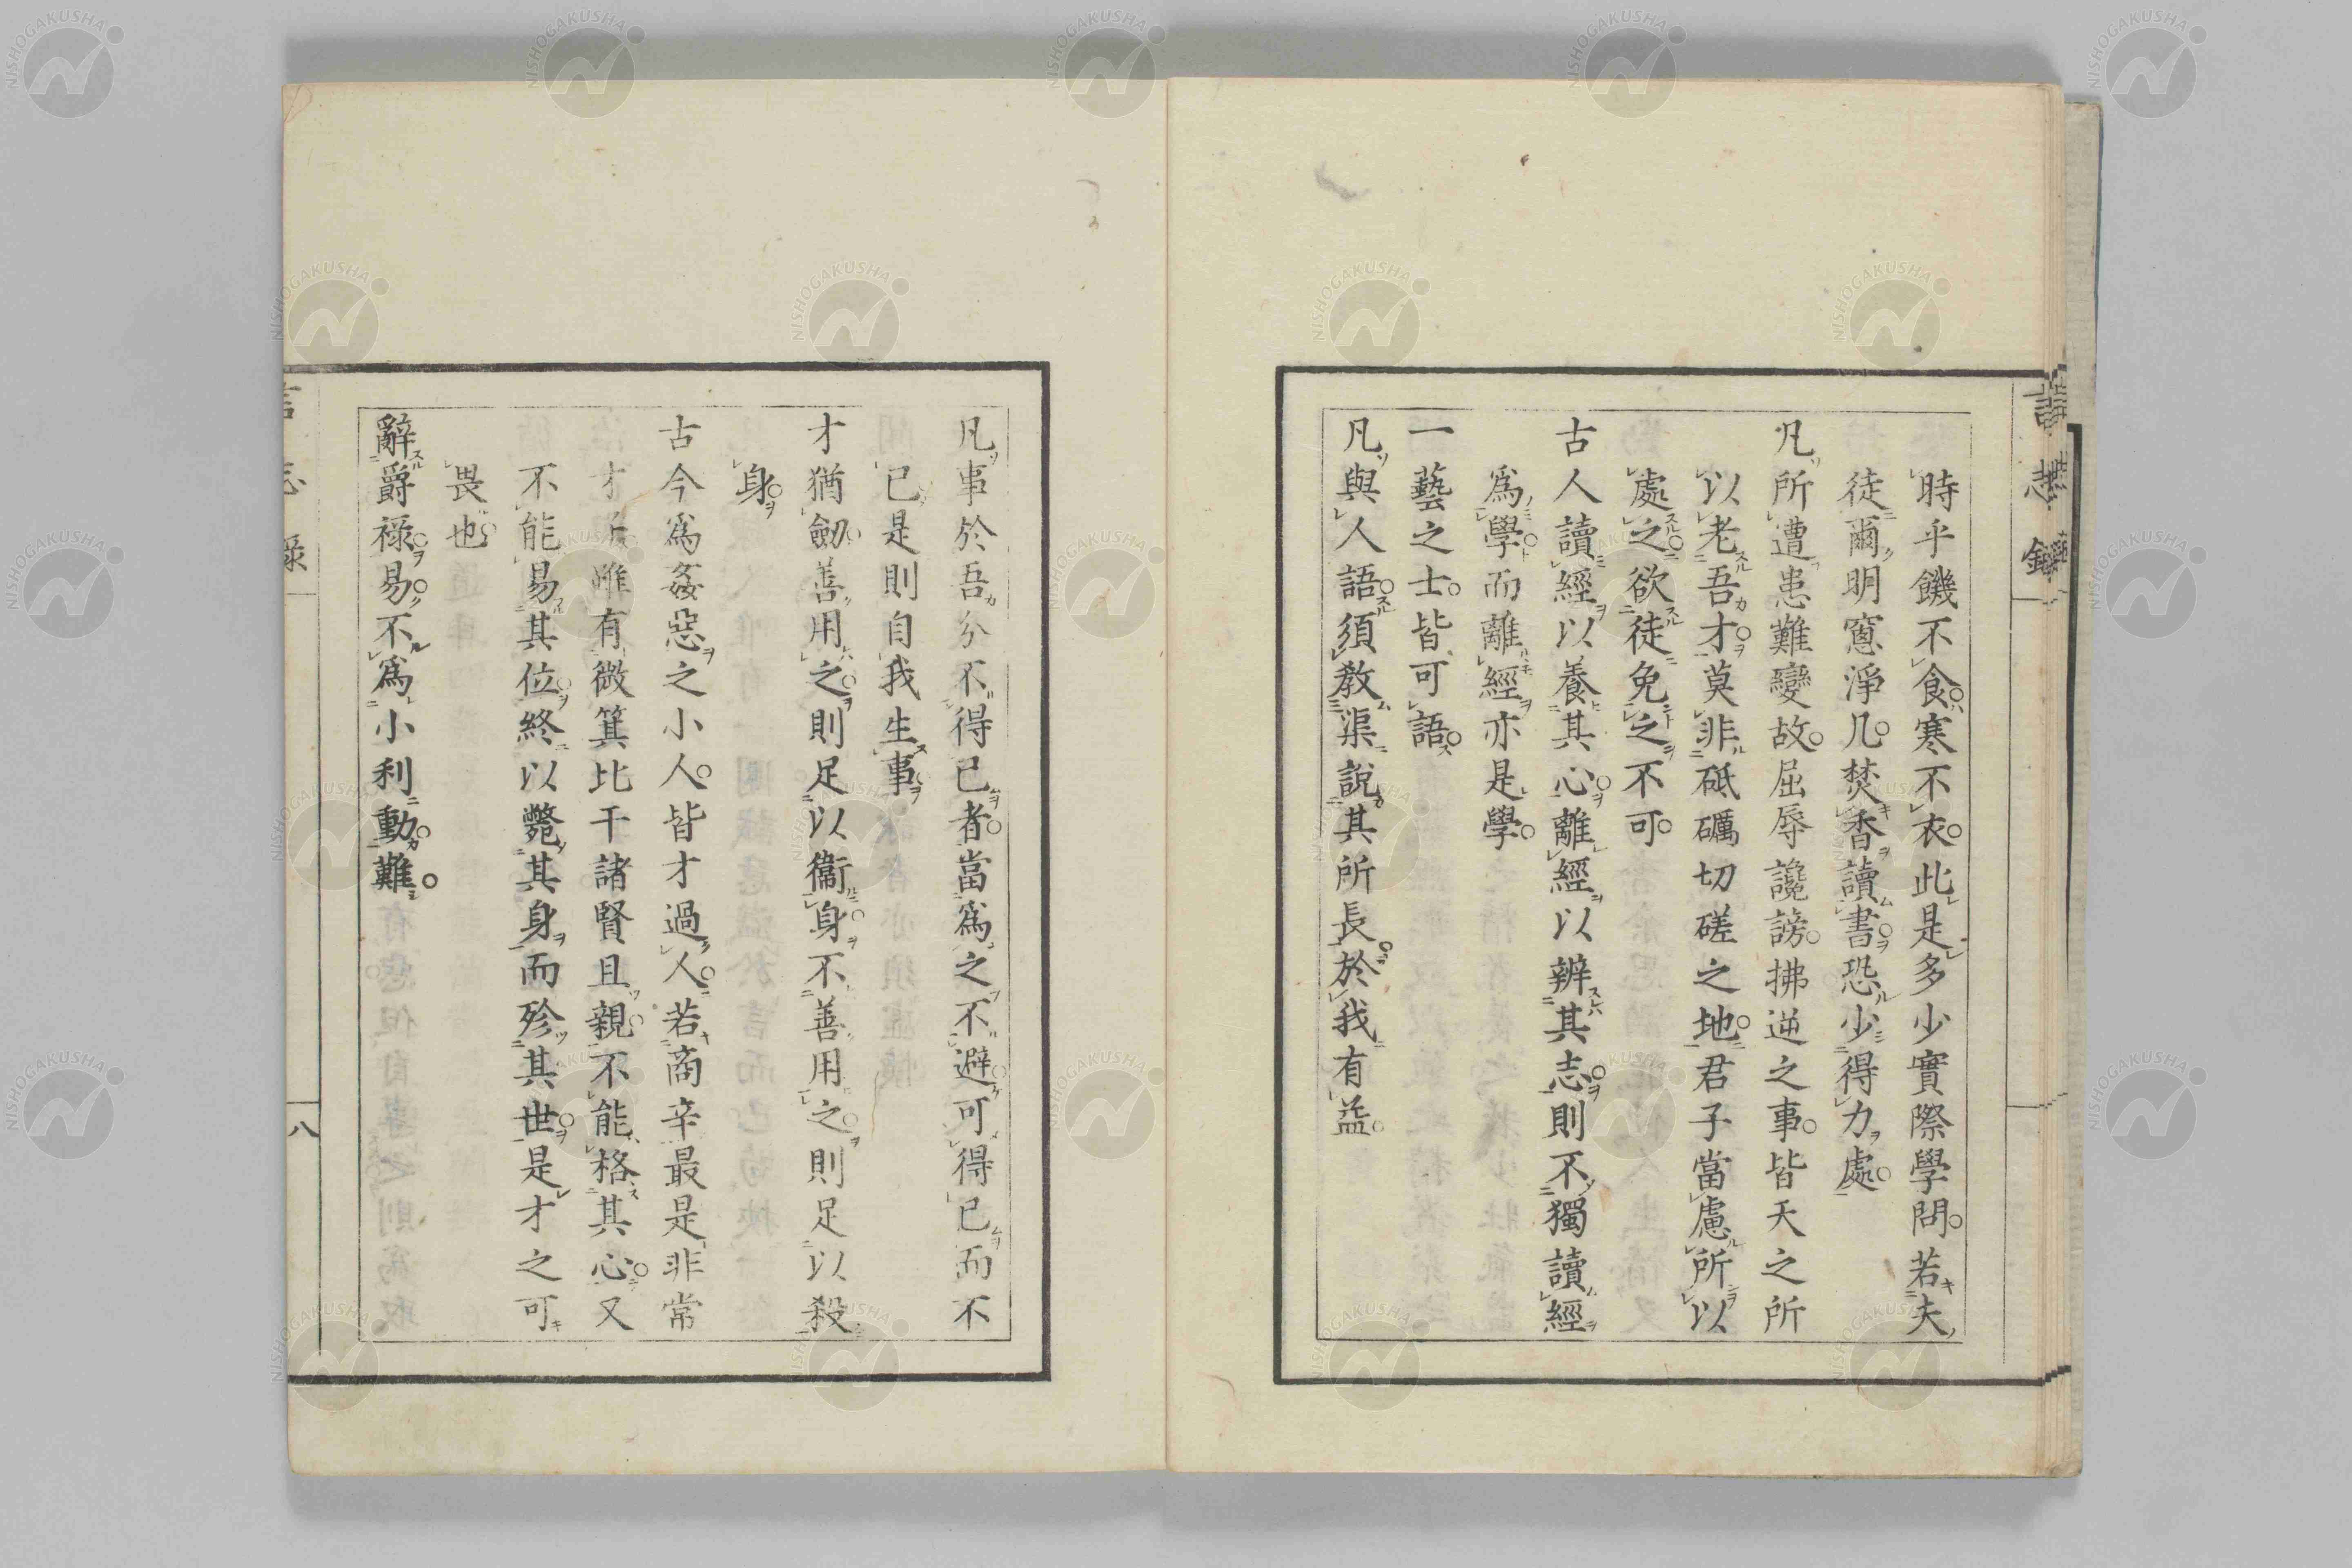 時乎饑不食寒不衣此是多少實際學問若夫
徒爾明窻淨几焚香讀書恐少得力處
凡所遭患難變故屈辱讒謗拂逆之事皆天之所
以老吾才莫非砥礪切磋之地君子當慮所以
處之欲徒免之不可
古人讀經以養其心離經以辨其志則不獨讀經
爲學而離經亦是學
一藝之士皆可語
凡與人語須敎渠說其所長於我有益
凡事於吾分不得已者當爲之不避可得已而不
已是則自我生事
才猶劒善用之則足以衞身不善用之則足以殺
身
古今爲姦惡之小人皆才過人若商辛最是非常
才子雖有微箕比干諸賢且親不能格其心又
不能易其位終以斃其身而殄其世是才之可
畏也
辭爵祿易不爲小利動難
言志錄
八
NISHOGAKUSHA